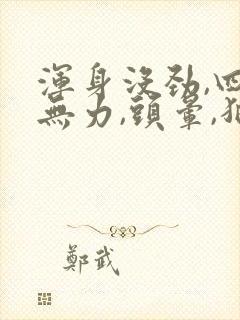 渾身沒勁,四
無力,頭暈,犯
鄭武